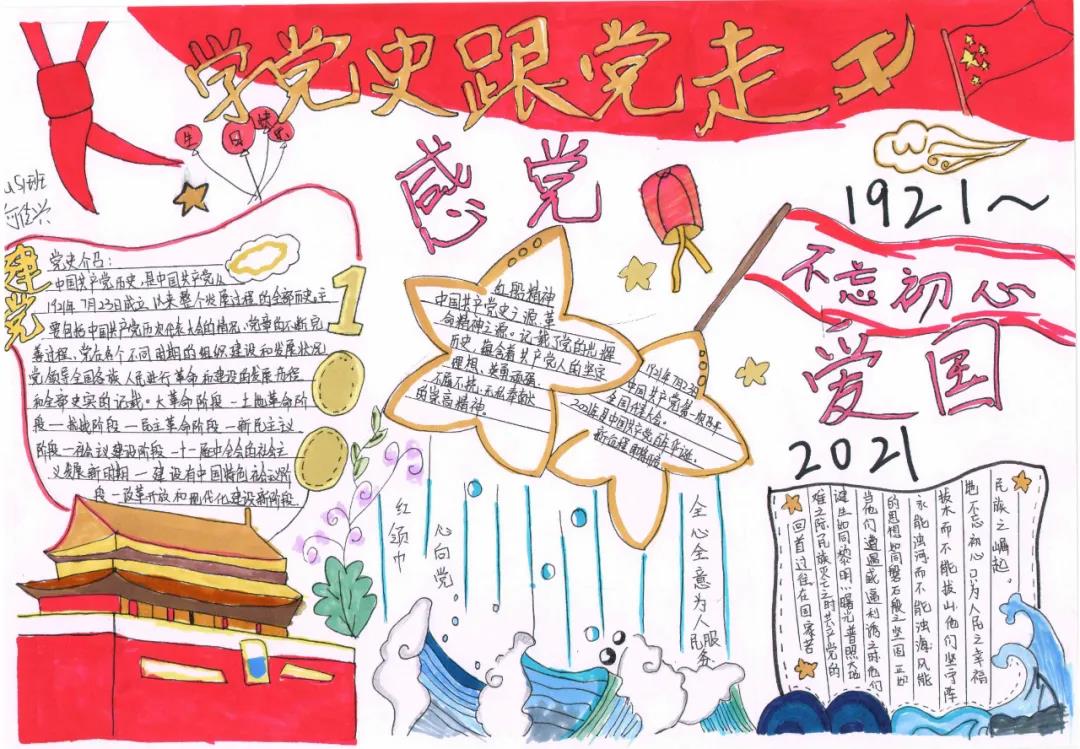 学党史跟党走
生日快乐
感党
1921~
不忘初心
爱国
2021
建党
100
党史介召:
中国共产党历史,是中国共产党从
1921年7月23日成立以来整个发展过程的全部历史,主
要包括中国共产党历次代表大会的情况、党章的不断完
善过程、党在各个不同时期的组织建设和发展状况
党领导全国各族人民进行革命和建设的发展历程
和全部史实的记载。大革命阶段—土地革命阶
段—抗战阶段—民主革命阶段—新民主义
阶段—社会议建设阶段—十一届中全会的社会主
义发展新时期—建设有中国特色社会议阶
段—改革开放和现代化建设新阶段.
红船精神
中国共产党史之源,革
命精神之源。记载了党的光辉
历史,蕴含着共产党人的坚定
理想、英勇顽强、
不屈不挠、无私奉献
的崇高精神。
1921年7月23日
中国共产党第一次召开
全国代表大会。
红领巾
心向党
全心全意为人民服务
民族之崛起。
他不忘初心只为人民之幸福
拔木而不能拔山,他们坚守阵
水能浊河而不能浊海,风能
的思想如同磐石般之坚固正如
当他们遭遇威逼利诱之时他们
诞生如同黎明之曙光普照大地
难之际,民族灭亡之时共产党的
回首过往在国家苦